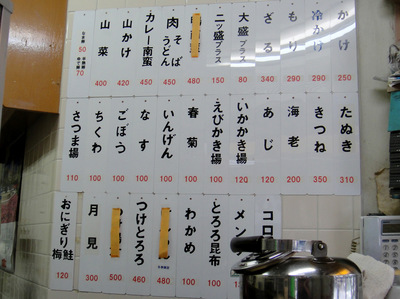 かけ 250
冷かけ 290
もり 290
ざる 340
大盛プラス 80
二ッ盛プラス 150
480
肉そばうどん 450
カレー南蛮 450
山かけ 420
山菜 400
50
70
たぬき 310
きつね 350
海老 200
あじ 120
いかかき揚 120
えびかき揚 100
春菊 100
いんげん 100
なす 100
ごぼう 100
ちくわ 100
さつま揚 110
コロ
メン
とろろ昆布
わかめ 100
480
つけとろろ 460
500
月見 300
おにぎり鮭梅 120